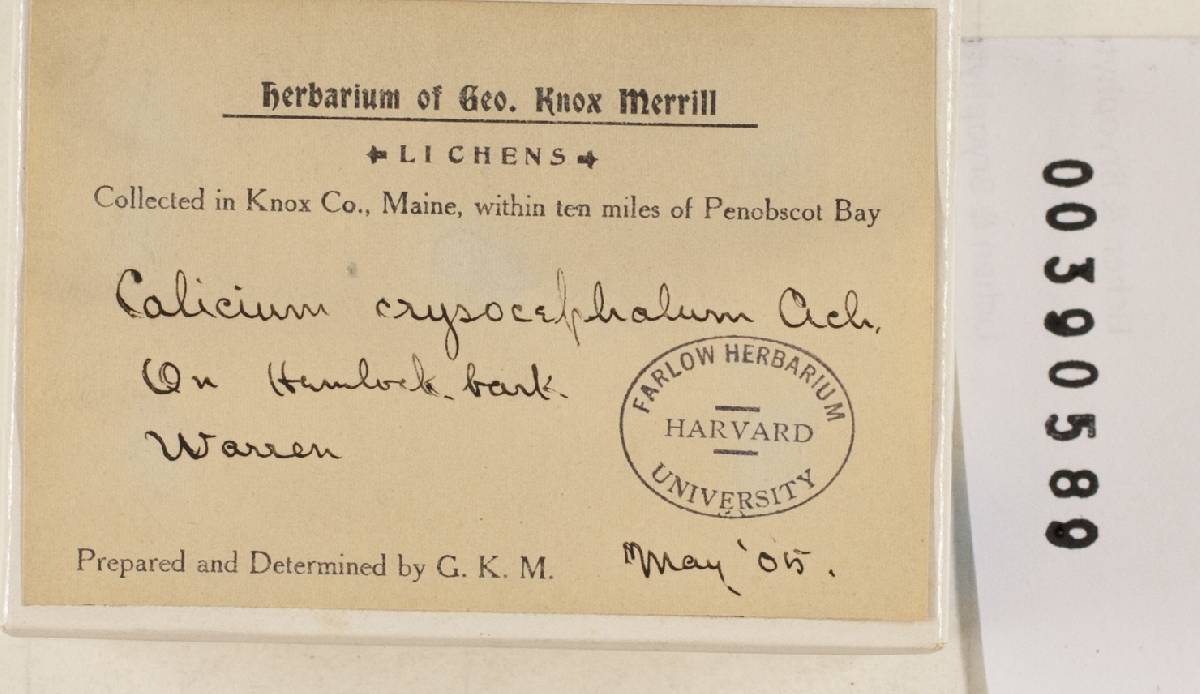 Herbarium of Geo. Knox Merrill
LICHENS
Collected in Knox Co., Maine, within ten miles of Penobscot Bay
Calicium crysocephalum Ach.
On Hemlock bark.
Warren
FARLOW HERBARIUM
HARVARD
UNIVERSITY
Prepared and Determined by G. K. M. May '05.
00390589